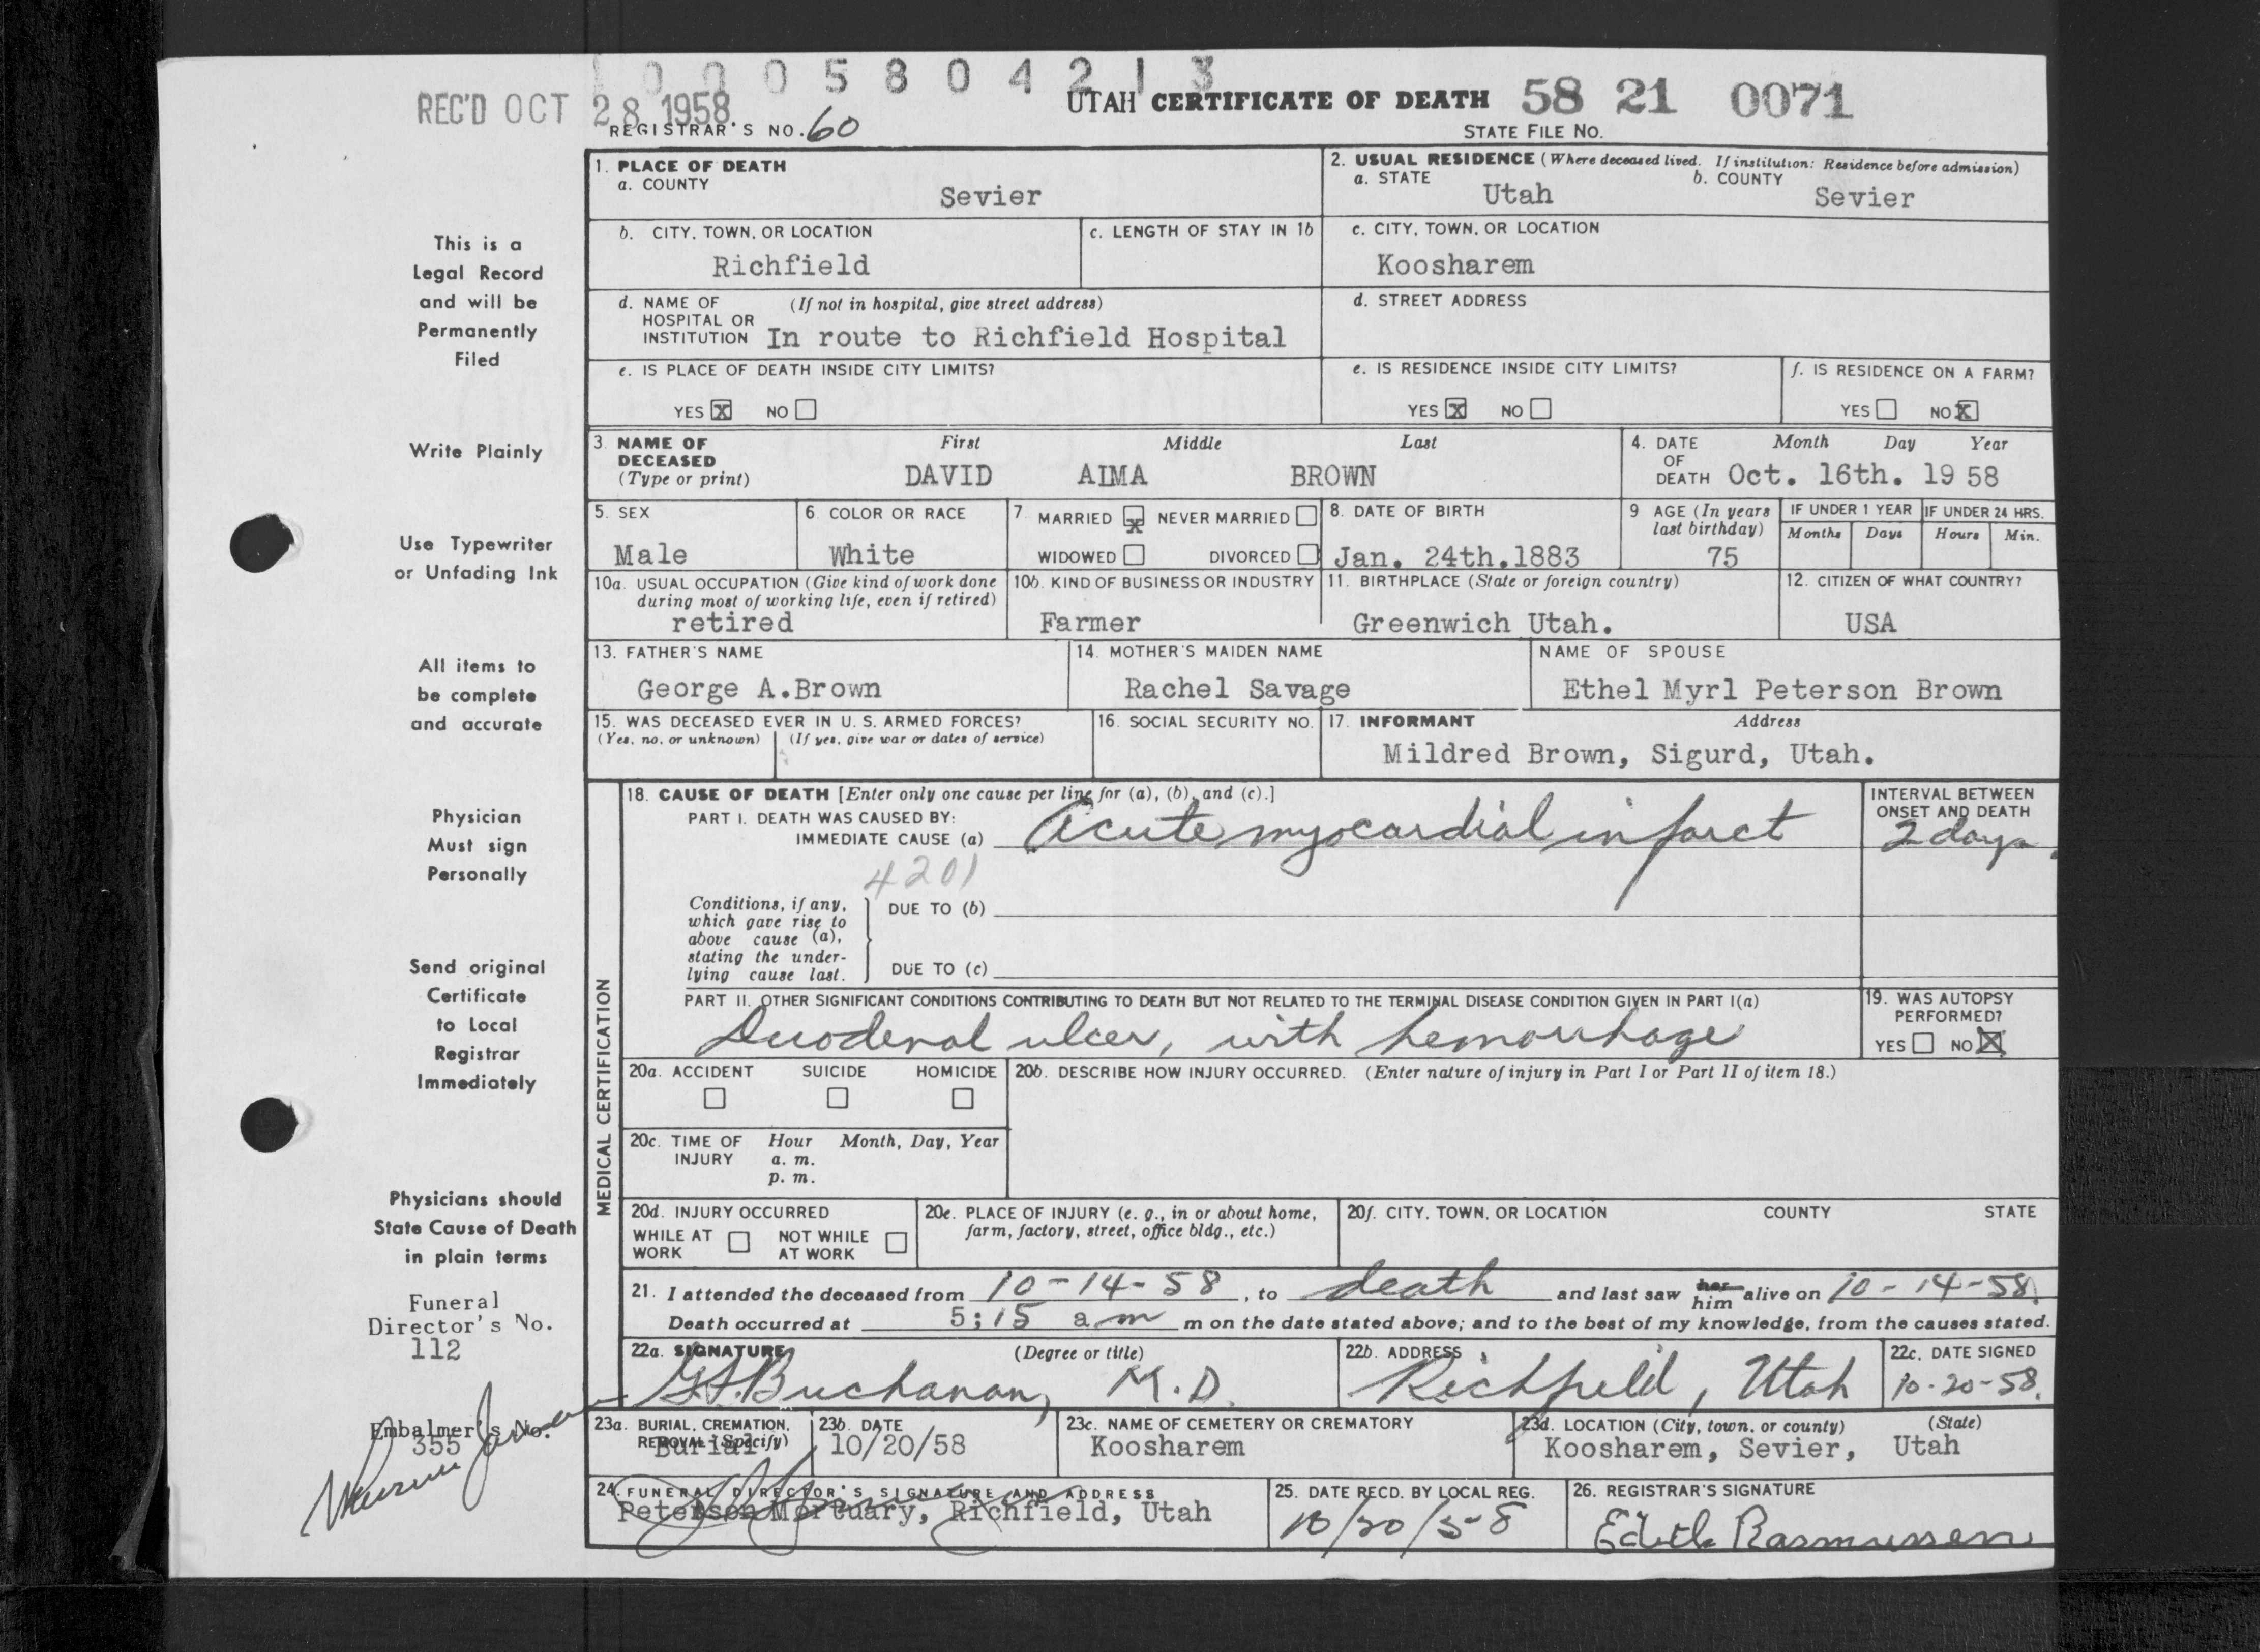 1 0 0 0 5 8 0 4 2 1 3
REC'D OCT 28 1958
UTAH CERTIFICATE OF DEATH 58 21 0071
REGISTRAR'S NO. 60
STATE FILE NO.
This is a
Legal Record
and will be
Permanently
Filed
Write Plainly
Use Typewriter
or Unfading Ink
All items to
be complete
and accurate
Physician
Must sign
Personally
Send original
Certificate
to Local
Registrar
Immediately
Physicians should
State Cause of Death
in plain terms
Funeral
Director's No.
112
Embalmer's No.
355
1. PLACE OF DEATH
a. COUNTY
Sevier
2. USUAL RESIDENCE (Where deceased lived. If institution: Residence before admission)
a. STATE b. COUNTY
Utah Sevier
b. CITY, TOWN, OR LOCATION
Richfield
c. LENGTH OF STAY IN 1b
c. CITY, TOWN, OR LOCATION
Koosharem
d. NAME OF (If not in hospital, give street address)
HOSPITAL OR
INSTITUTION In route to Richfield Hospital
d. STREET ADDRESS
e. IS PLACE OF DEATH INSIDE CITY LIMITS?
YES X NO
e. IS RESIDENCE INSIDE CITY LIMITS?
YES X NO
f. IS RESIDENCE ON A FARM?
YES NO X
3. NAME OF First Middle Last
DECEASED
(Type or print) DAVID AlMA BROWN
4. DATE Month Day Year
OF
DEATH Oct. 16th. 19 58
5. SEX
Male
6. COLOR OR RACE
White
7. MARRIED X NEVER MARRIED
WIDOWED DIVORCED
8. DATE OF BIRTH
Jan. 24th.1883
9 AGE (In years
last birthday)
75
IF UNDER 1 YEAR IF UNDER 24 HRS.
Months Days Hours Min.
10a. USUAL OCCUPATION (Give kind of work done
during most of working life, even if retired)
retired
10b. KIND OF BUSINESS OR INDUSTRY
Farmer
11. BIRTHPLACE (State or foreign country)
Greenwich Utah.
12. CITIZEN OF WHAT COUNTRY?
USA
13. FATHER'S NAME
George A.Brown
14. MOTHER'S MAIDEN NAME
Rachel Savage
NAME OF SPOUSE
Ethel Myrl Peterson Brown
15. WAS DECEASED EVER IN U. S. ARMED FORCES?
(Yes, no, or unknown) (If yes, give war or dates of service)
16. SOCIAL SECURITY NO.
17. INFORMANT Address
Mildred Brown, Sigurd, Utah.
MEDICAL CERTIFICATION
18. CAUSE OF DEATH [Enter only one cause per line for (a), (b), and (c).]
PART I. DEATH WAS CAUSED BY:
IMMEDIATE CAUSE (a) Acute myocardial infarct
INTERVAL BETWEEN
ONSET AND DEATH
2 days.
4201
Conditions, if any,
which gave rise to
above cause (a),
stating the under-
lying cause last.
DUE TO (b)
DUE TO (c)
PART II. OTHER SIGNIFICANT CONDITIONS CONTRIBUTING TO DEATH BUT NOT RELATED TO THE TERMINAL DISEASE CONDITION GIVEN IN PART I(a)
Duodenal ulcer, with hemorrhage
19. WAS AUTOPSY
PERFORMED?
YES NO X
20a. ACCIDENT SUICIDE HOMICIDE
20b. DESCRIBE HOW INJURY OCCURRED. (Enter nature of injury in Part I or Part II of item 18.)
20c. TIME OF Hour Month, Day, Year
INJURY a. m.
p. m.
20d. INJURY OCCURRED
WHILE AT NOT WHILE
WORK AT WORK
20e. PLACE OF INJURY (e. g., in or about home,
farm, factory, street, office bldg., etc.)
20f. CITY, TOWN, OR LOCATION COUNTY STATE
21. I attended the deceased from 10-14-58, to death and last saw her him alive on 10-14-58.
Death occurred at 5:15 am m on the date stated above; and to the best of my knowledge, from the causes stated.
22a. SIGNATURE (Degree or title)
Buchanan, M.D.
22b. ADDRESS
Richfield, Utah
22c. DATE SIGNED
10-20-58.
23a. BURIAL, CREMATION,
REMOVAL (Specify)
Burial
23b. DATE
10/20/58
23c. NAME OF CEMETERY OR CREMATORY
Koosharem
23d. LOCATION (City, town, or county) (State)
Koosharem, Sevier, Utah
24. FUNERAL DIRECTOR'S SIGNATURE AND ADDRESS
Peterson Mortuary, Richfield, Utah
25. DATE RECD. BY LOCAL REG.
10/20/58
26. REGISTRAR'S SIGNATURE
Edith Rasmussen